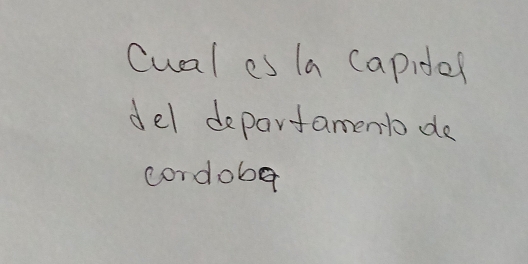 Cual es la capidal
del departamento de
cordoba